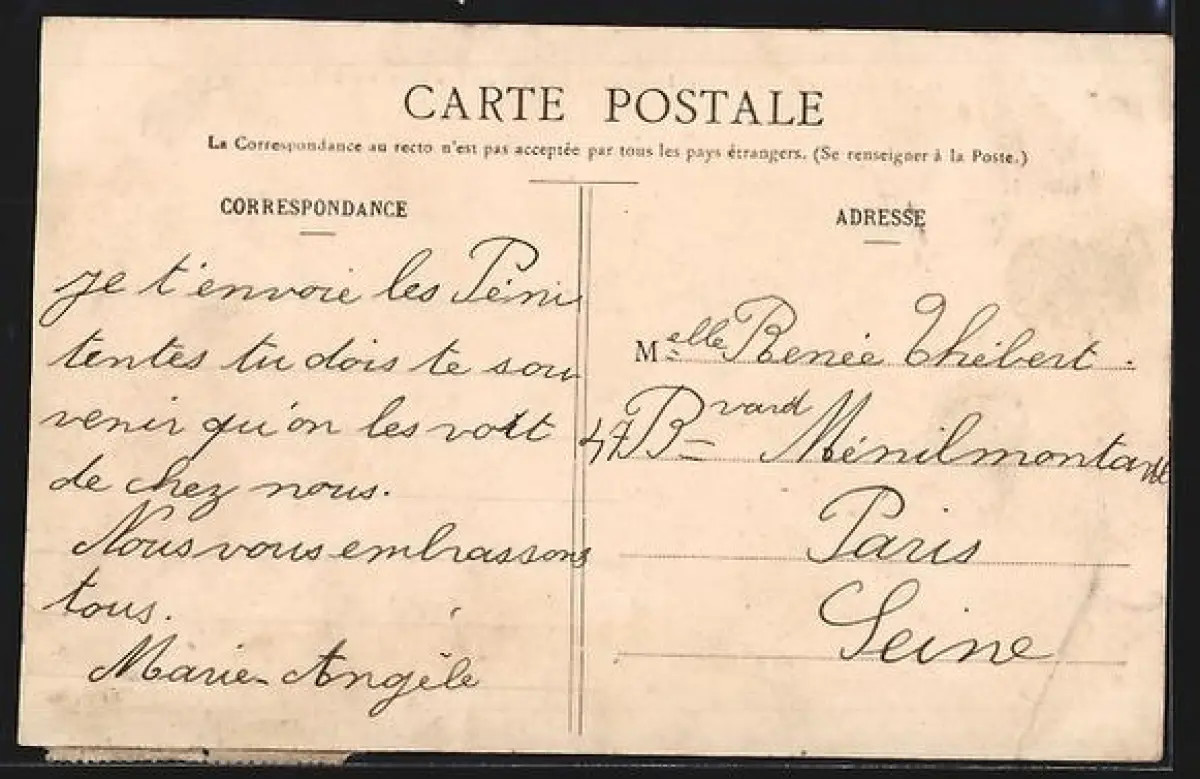 CARTE POSTALE
La Correspondance au recto n'est pas acceptée par tous les pays étrangers. (Se renseigner à la Poste.)
CORRESPONDANCE
je t'envoie les Péni
tentes tu dois te sou
venir qu'on les voit
de chez nous.
Nous vous embrassons
tous.
Marie-Angèle
ADRESSE
Melle Renée Thébert.
47 Bvard Ménilmontant
Paris
Seine